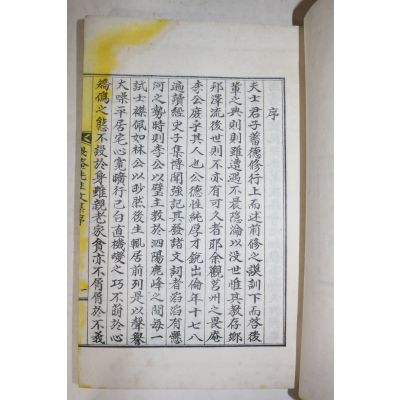 序
夫士君子蓄德修行上而述前修之謨訓下而啓後
輩之典則則雖遭遇不長隱淪以沒世惟其教存鄉
邦澤流後世則不亦有可久者耶余觀莒州之畏庵
李公度孚其人也公德性純厚才銳出倫年十七八
遍讀經史子集博聞強記其發諸文詞者滔滔有懸
河之勢時則李公以璧主教於泗陽鹿峰之間每一
試士襟佩如林公以妙然後生輒居前列是以聲譽
大噪平居宅心寬曠行己白直機變之巧不萌於心
矯僞之態不設於身雖親老家貧亦不屑屑於不義
畏庵先生文集序
一